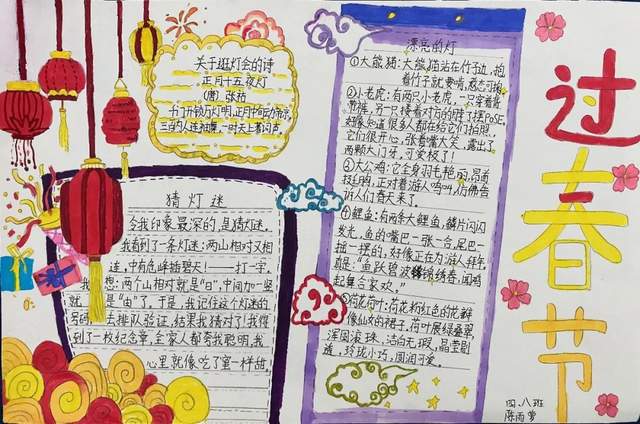 关于逛灯会的诗
正月十五夜灯
(唐) 张祜
千门开锁万灯明,正月中旬动帝京,
三百内人连袖舞,一时天上著词声。
猜灯迷
令我印象最深的是猜灯迷。
我看到了一条灯迷:两山相对又相
连,中有危峰插碧天!——打一字。
我想:两个山相对就是“日”,中间加一竖
就是“由”了。于是,我记住这个灯迷的
号码,去排队验证,结果我猜对了!我得
到了一枚纪念章,全家人都夸我聪明,我
心里就像吃了蜜一样甜。
漂亮的灯
①大熊猫:大熊猫站在竹子边,抱
着竹子就要啃,
②小老虎:有两只小老虎,一只穿着背
另一只搂着对方的脖子摆POSE,
好像知道很多人都在给它们拍照,
它们很开心,张着嘴大笑,露出了
两颗大门牙,可爱极了!
③大公鸡:它全身羽毛艳丽,昂首
挺胸,正对着游人鸣叫,仿佛告
诉人们春天来了。
④鲤鱼:有两条大鲤鱼,鳞片闪闪
发光,鱼的嘴巴一张一合,尾巴一
摇一摆的,好像正在为游人拜年。
就是:“鱼跃碧波铺锦绣春,闻鸡
起舞合家欢。”
⑤荷花荷叶:荷花粉红色的花瓣
像仙女的裙子,荷叶展绿叠翠
浑圆滚珠,洁白无瑕,晶莹剔
透,玲珑小巧,圆润可爱。
过春节
四.八班
陈雨萝